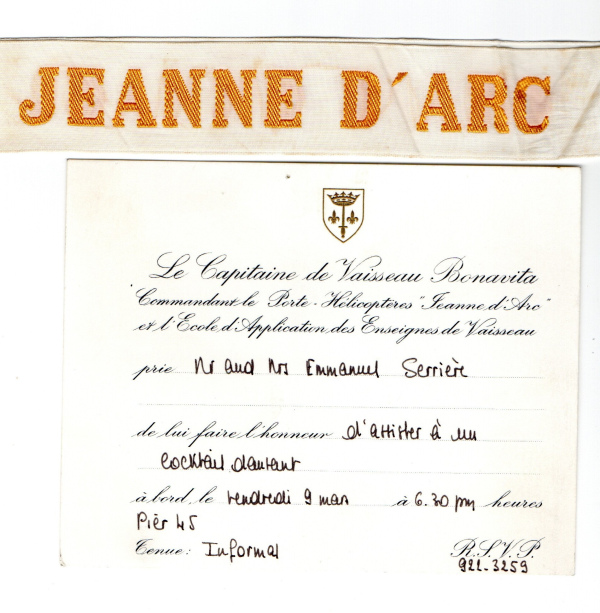 JEANNE D'ARC
Le Capitaine de Vaisseau Bonavita
Commandant le Porte-Hélicoptères "Jeanne d'Arc"
et l'Ecole d'Application des Enseignes de Vaisseau
prie Mr and Mrs Emmanuel Serrière
de lui faire l'honneur d'assister à un
cocktail dansant
à bord, le vendredi 9 mars à 6.30 pm heures
Pier 45
Tenue: Informal R.S.V.P.
922-3259